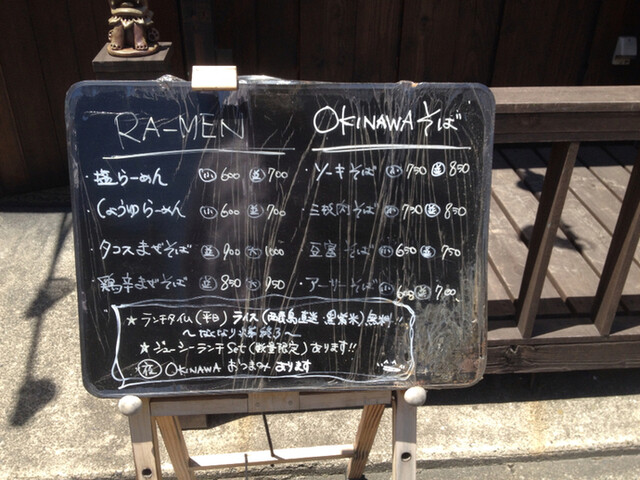 RA-MEN
・塩らーめん ㊥小 600 並 700
・しょうゆらーめん 小 600 並 700
・タコスまぜそば 並 900 大 1000
・鶏辛まぜそば 並 850 大 950
OKINAWAそば
・ソーキそば 小 750 並 850
・三枚肉そば 小 750 並 850
・豆富そば 小 650 並 750
・アーサーそば 小 600 並 700
★ランチタイム(平日)ライス(直送 黒紫米)無料!!
~なくなり次第終了~
★ジューシーランチSet(数量限定)あります!!
OKINAWAおつまみあります